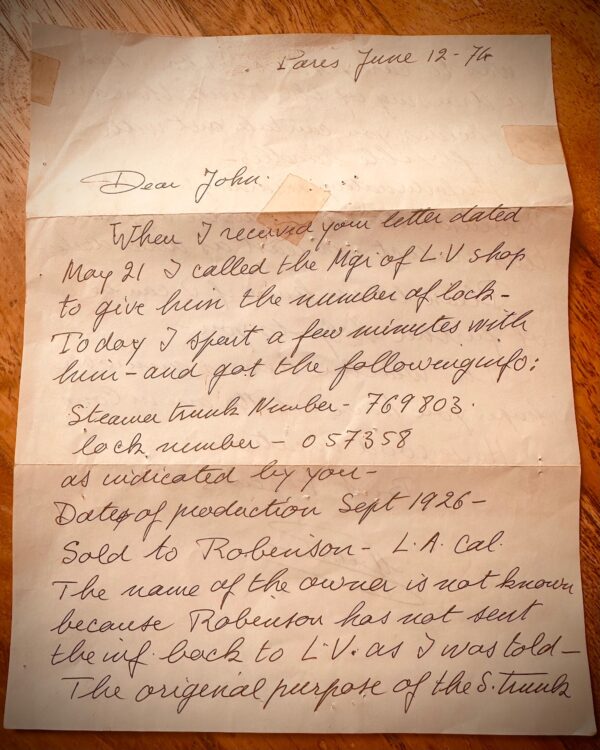 Paris June 12-74
Dear John.
When I received your letter dated
May 21 I called the Mgr of L.V shop
to give him the number of lock-
Today I spent a few minutes with
him-and got the following info:
Steamer trunk Number- 769803.
lock number - 057358
as indicated by you-
Date of production Sept 1926-
Sold to Robenson- L.A. Cal.
The name of the owner is not known
because Robenson has not sent
the inf. back to L.V. as I was told-
The original purpose of the S. trunk